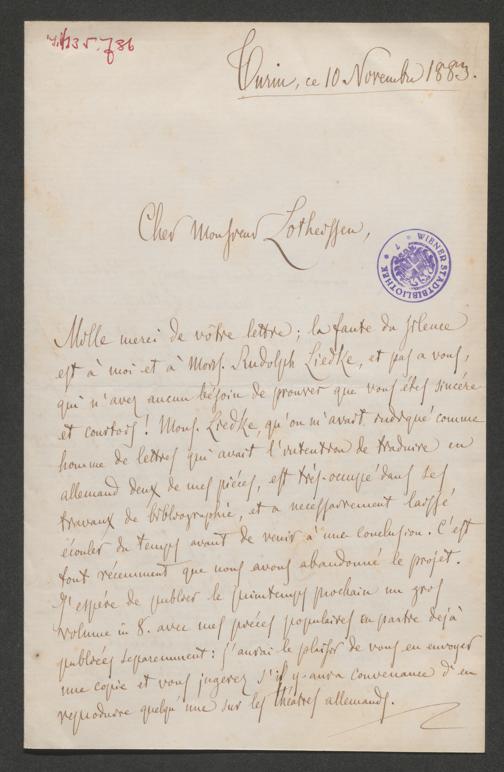 Turin, ce 10 Novembre 1883.
Cher Monsieur Lotheissen,
WIENER STADTBIBLIOTHEK
Mille merci de vôtre lettre; la faute du silence
est à moi et à Mons. Rudolph Liedke, et pas a vous,
qui n'avez aucun bésoin de prouver que vous êtes sincére
et courtois! Mons. Liedke, qu'on m'avait indiqué comme
homme de lettres qui avait l'intention de traduire en
allemand deux de mes piéces, est trés-occupé dans ses
travaux de bibliographie, et a necessairement laissé
écouler du temps avant de venir à une conclusion. C'est
tout récemment que nous avons abandonné le projet.
J'espére de publier le printemps prochain un gros
volume in 8. avec mes piéces populaires en partie dejà
publiées separemment: j'aurai le plaisir de vous en envoyer
une copie et vous jugerez s'il y-aura convenance d'en
reproduire quelqu'une sur les théâtres allemands.